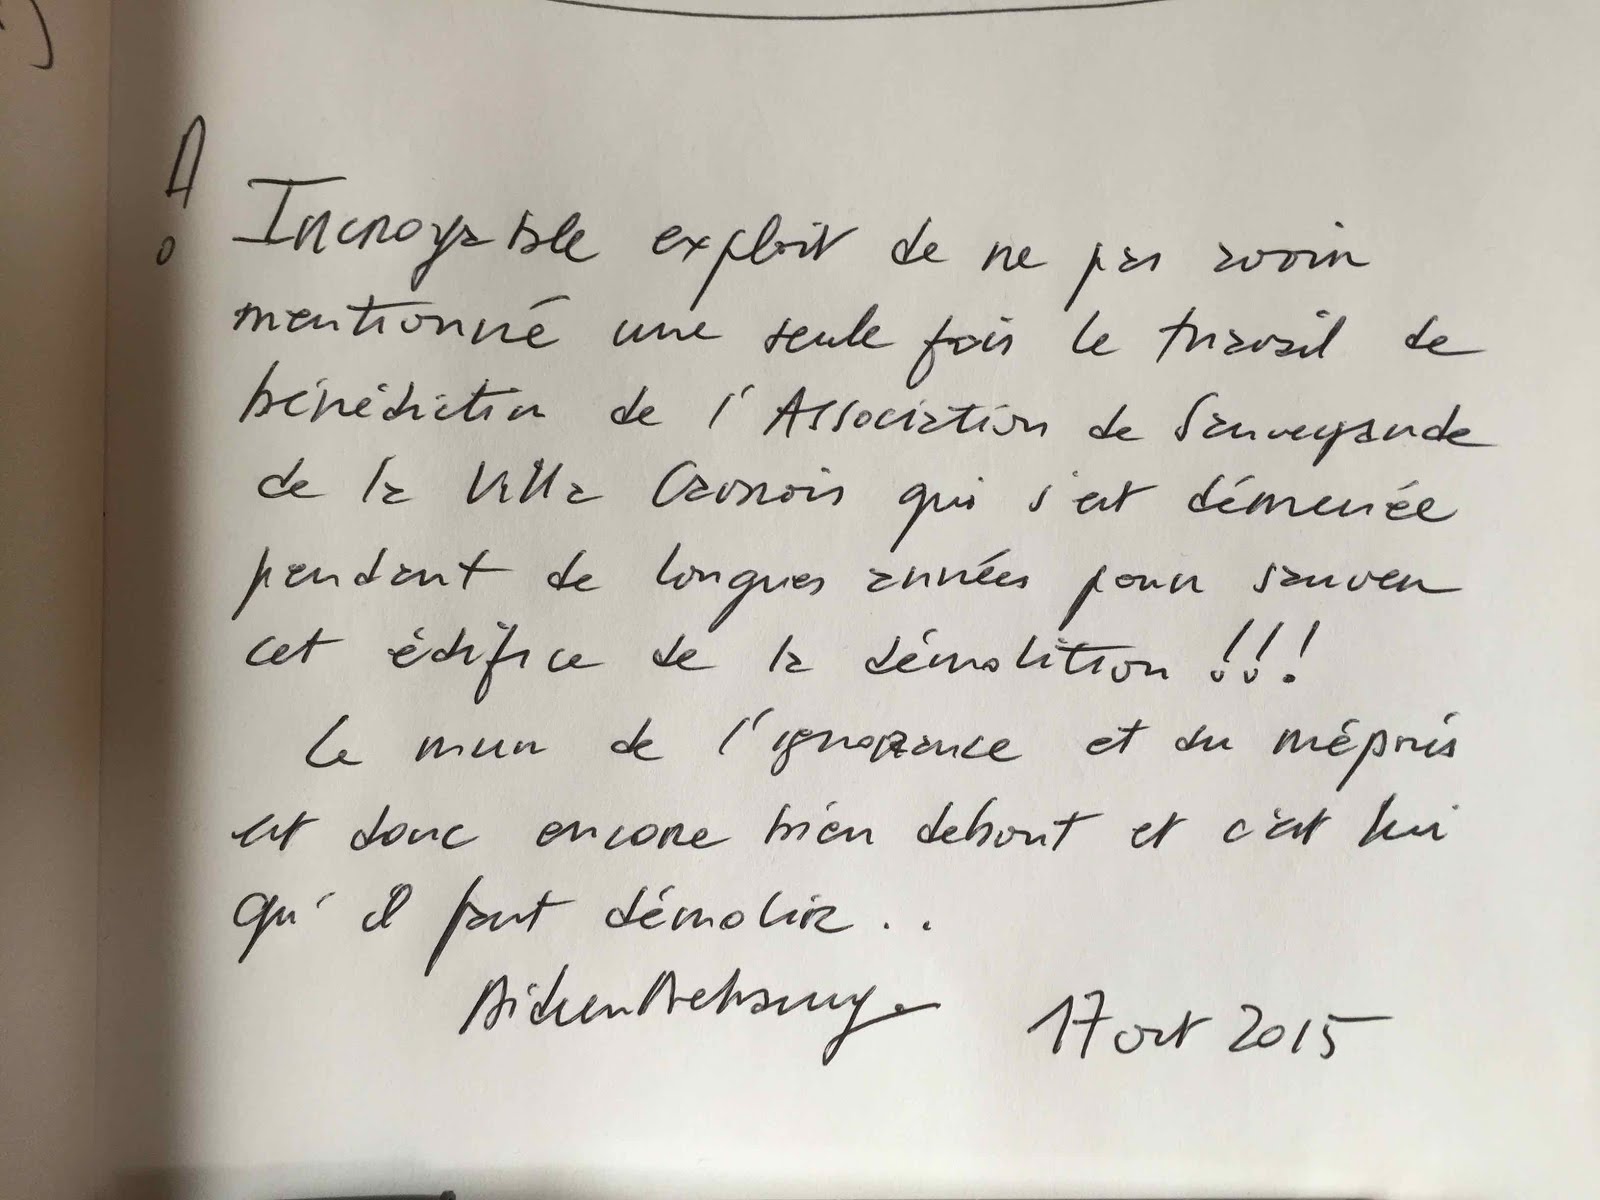 Incroyable exploit de ne pas avoir
mentionné une seule fois le travail de
bénédictin de l'Association de Sauvegarde
de la Villa Cavrois qui s'est démenée
pendant de longues années pour sauver
cet édifice de la démolition !!!
Le mur de l'ignorance et du mépris
est donc encore bien debout et c'est lui
qu'il faut démolir ..
17 oct 2015